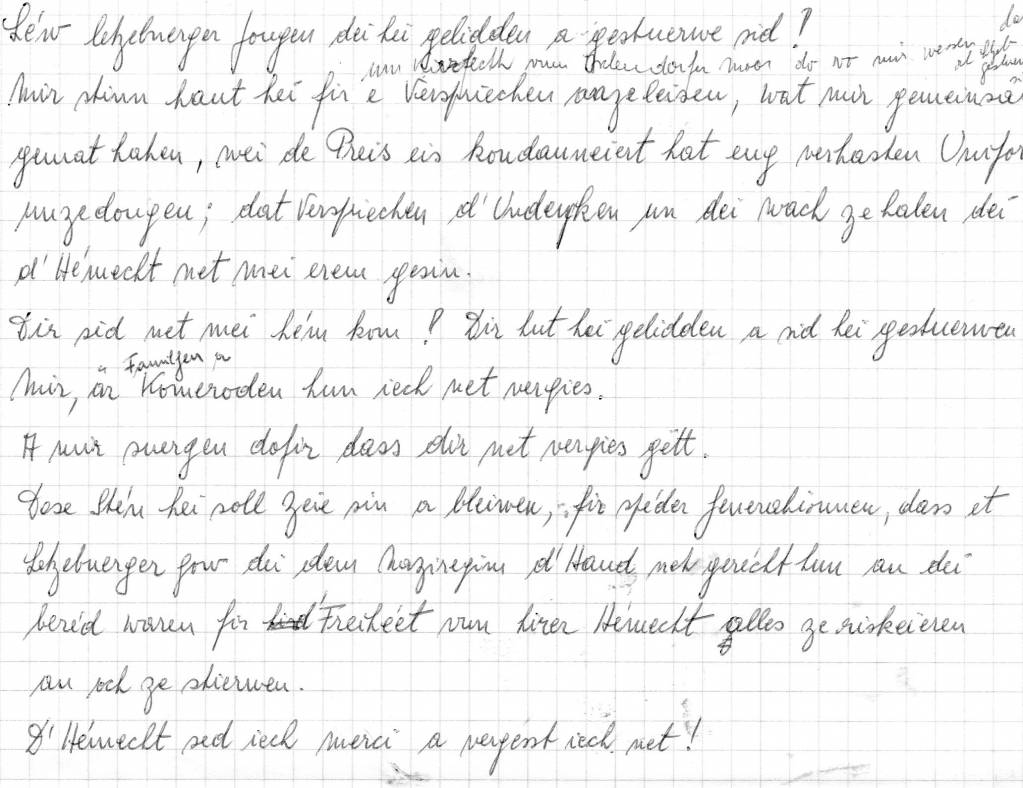 Léw letzebuerger Jongen déi hei gelidden a gestuerwe sid!
um vum do wo mir wessen, dat
Mir stinn haut hei fir e Verspriechen anzeleisen, wat mir gemeinsa
gemat haben, wei de Preis eis kondamneiert hat eng verhasten Unifor
unzedongen; dat Verspriechen d'Undenken un dei wach ze halen déi
d'Hémecht net mei erem gesin.
Dir sid net mei hém kom! Dir hut hei gelidden a sid hei gestuerwen
Familjen a
Mir, är Komeroden hun iech net vergies.
A mir suergen dofir dass dir net vergies gett.
Dese Stén hei soll Zeie sin a bleiwen, fir spéder Generatiounen, dass et
Letzebuerger gow dei dem Naziregim d'Hand net gerécht hun an dei
beréd waren fir d'Freihéet vun hirer Hémecht alles ze riskeieren
an och ze stierwen.
D'Hémecht sed iech merci a vergesst iech net!